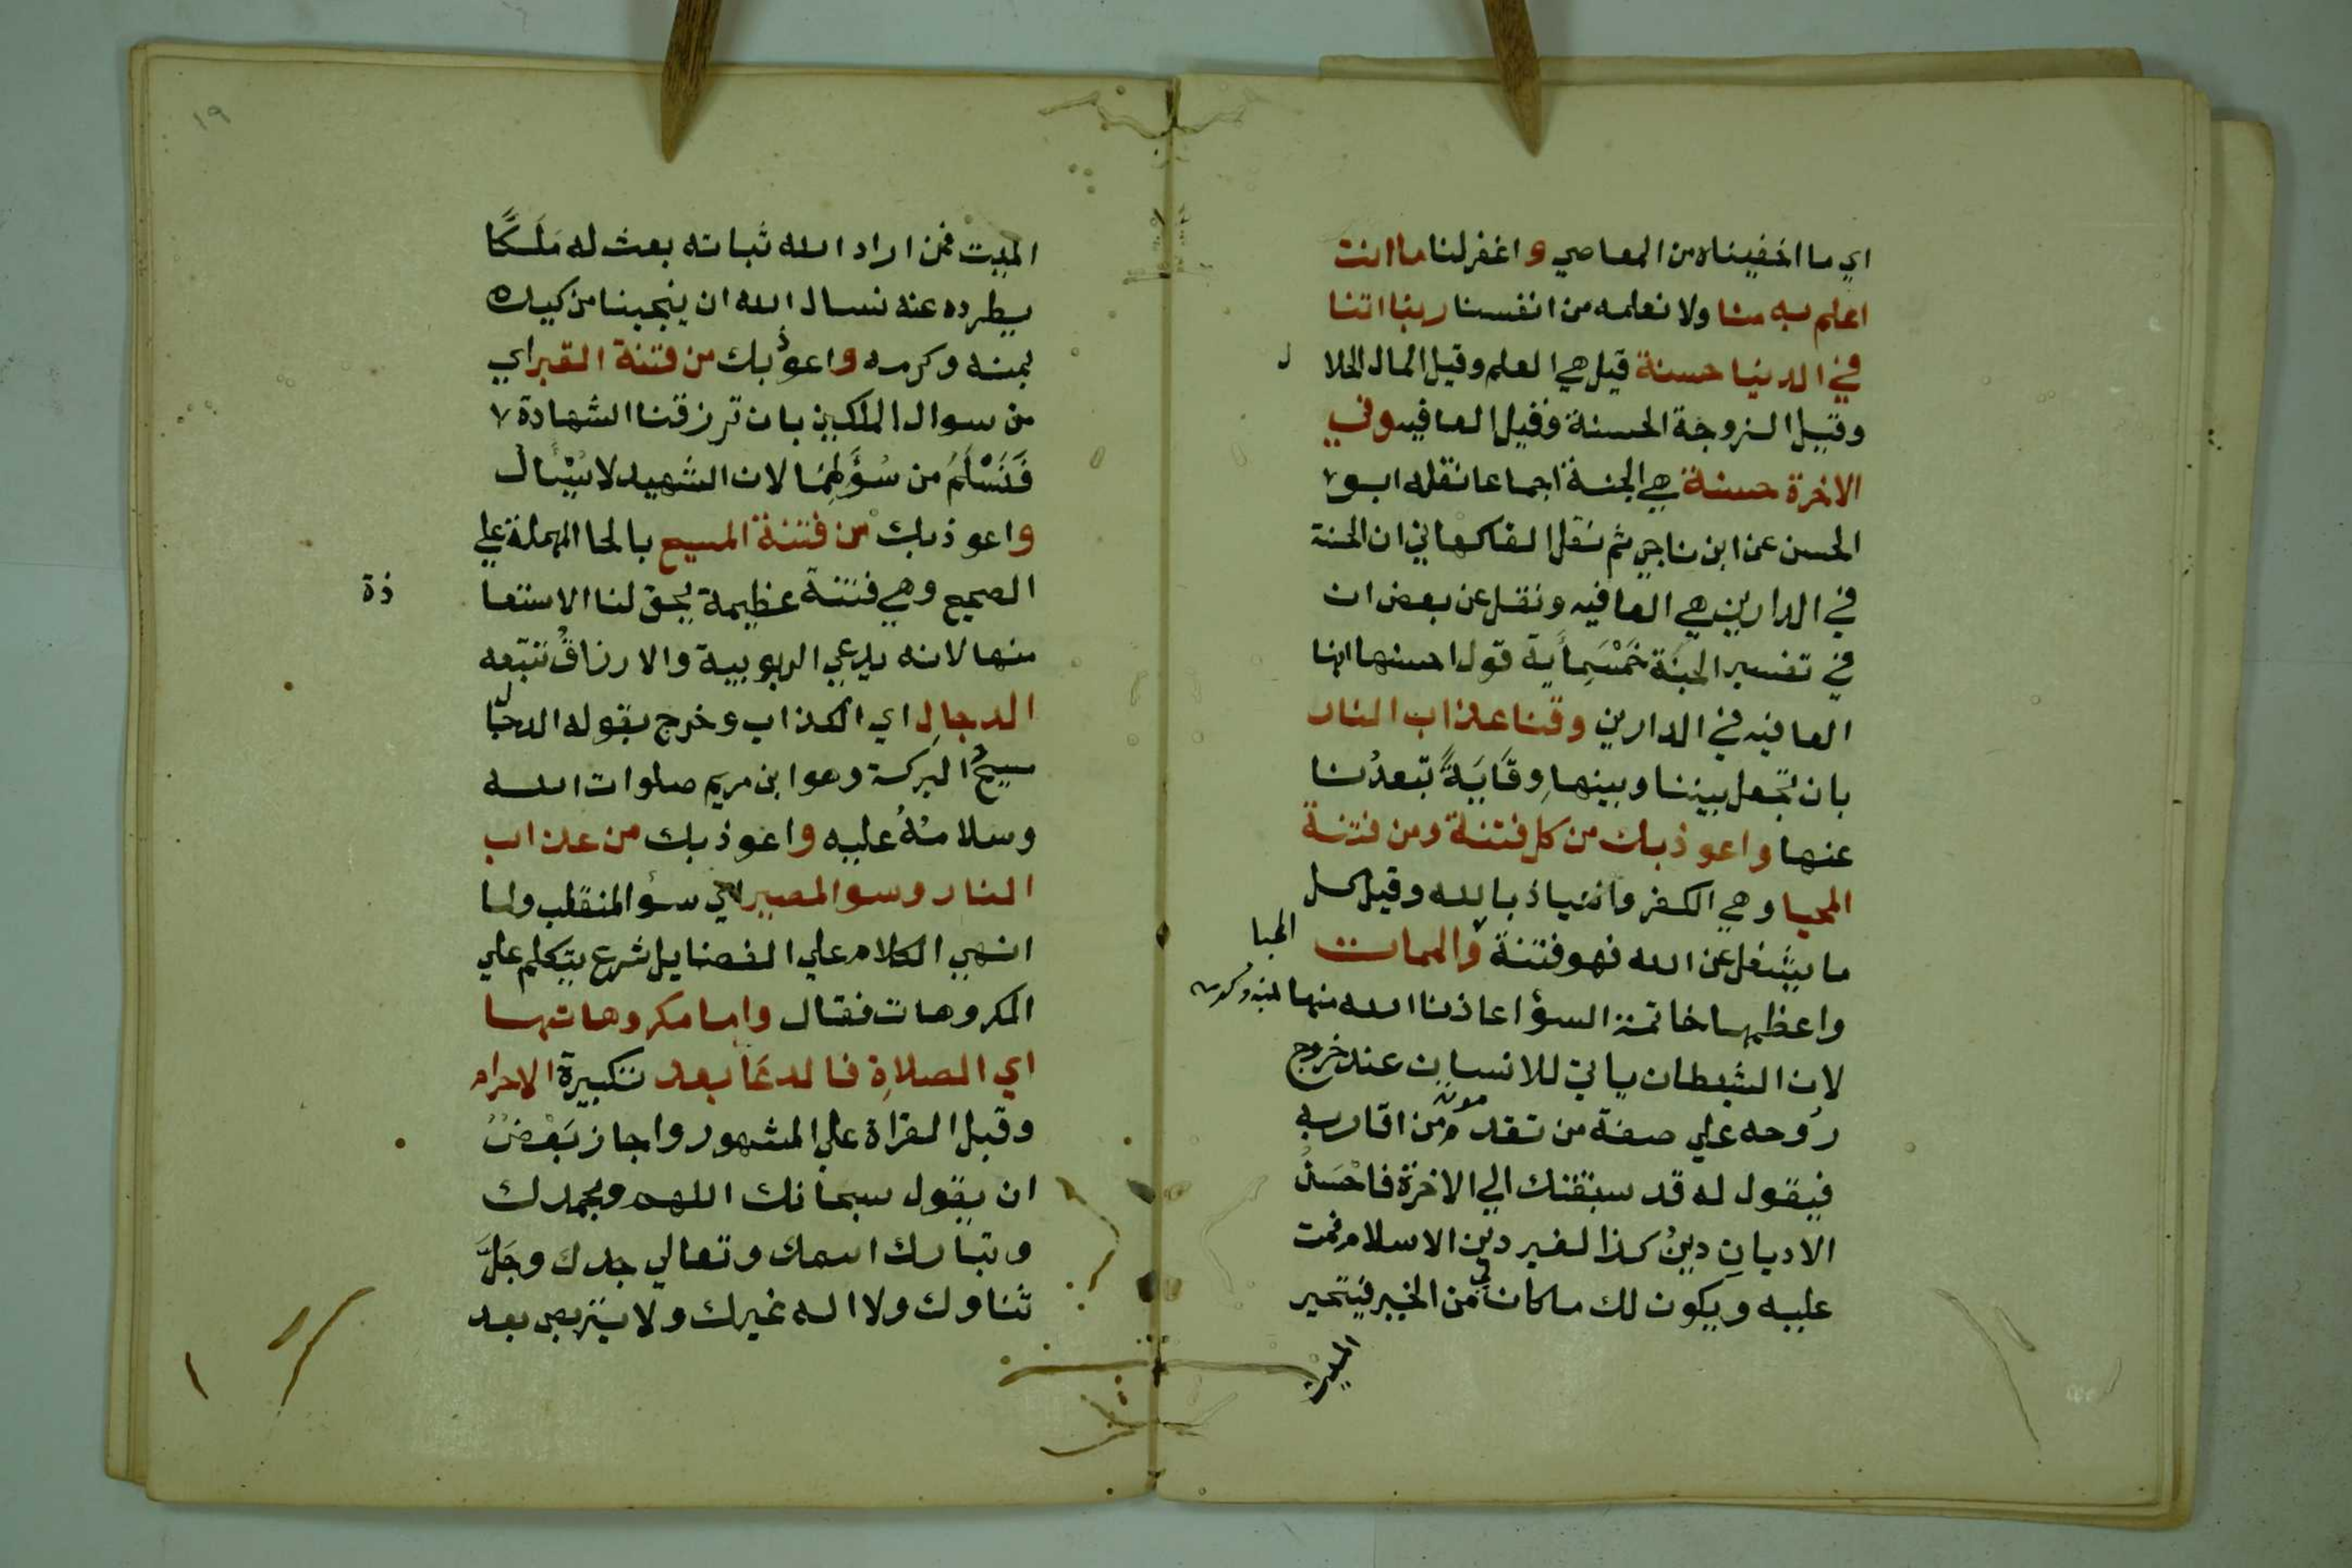 اي ما اخفيناه من المعاصي واغفر لنا ما انت
اعلم به منا ولا نعلمه من انفسنا ربنا اتنا
في الدنيا حسنة قيل هي العلم وقيل المال الحلا ل
وقيل الزوجة الحسنة وقيل العافيه وفي
الاخرة حسنة هي الجنة اجماعا نقله ابو
الحسن عن ابن ناجي ثم نقل الفاكهاني ان الحسنة
في الدارين هي العافيه ونقل عن بعض ان
في تفسير الحسنة خَمْسَمِأية قول احسنها انها
العافيه في الدارين وقنا عذاب النار
بان تجعل بيننا وبينها وِقَايَةً تبعدُنا
عنها واعوذ بك من كل فتنة ومن فتنة
المحيا وهي الكفر والعياذ بالله وقيل كل
ما يشغل عن الله فهو فتنة والممات
المحيا
واعظمها خاتمة السؤ اعاذنا الله منها بمنه وكرمه
لان الشيطان ياتي للانسان عند خروج
رُوحه علي صفة من تقدم موته من اقاربه
فيقول له قد سبقتك الي الاخرة فاحْسَنُ
الاديانِ دينُ كذا لغير دين الاسلام فمت
عليه ويكون لك ما كان لي من الخير فيتحير
الميت
١٩
الميت فمن اراد الله ثباته بعث له مَلَكًا
يطرده عنه نسال الله ان ينجينا من كيده
بمنه وكرمه واعوذُ بك من فتنة القبر اي
من سوال الملكين بان ترزقنا الشهادة
فَنَسْلَمُ من سُؤَلِهِمَا لان الشهيد لا يُسْأَل
واعوذ بك من فتنة المسيح بالحا المهملة علي
الصحيح وهي فتنة عظيمة يحق لنا الاستعا ذة
منها لانه يدعي الربوبية والارزاقُ تتبعه
الدجالِ اي الكذاب وخرج بقوله الدجال
مسيحُ البركة وهو ابن مريم صلوات الله
وسلامُهُ عليه واعوذ بك من عذاب
النار وسو المصير اي سؤ المنقلب ولما
انهي الكلام علي الفضايل شرع يتكلم علي
المكروهات فقال واما مكروهاتها
اي الصلاةِ فالدعَا بعد تكبيرة الاحرام
وقبل القراة علي المشهور واجاز بَعْضٌ
ان يقول سبحانك اللهم وبحمدك
وتبارك اسمك وتعالي جدك وجَلَّ
ثناوك ولا اله غيرك ولا يتربص بعد